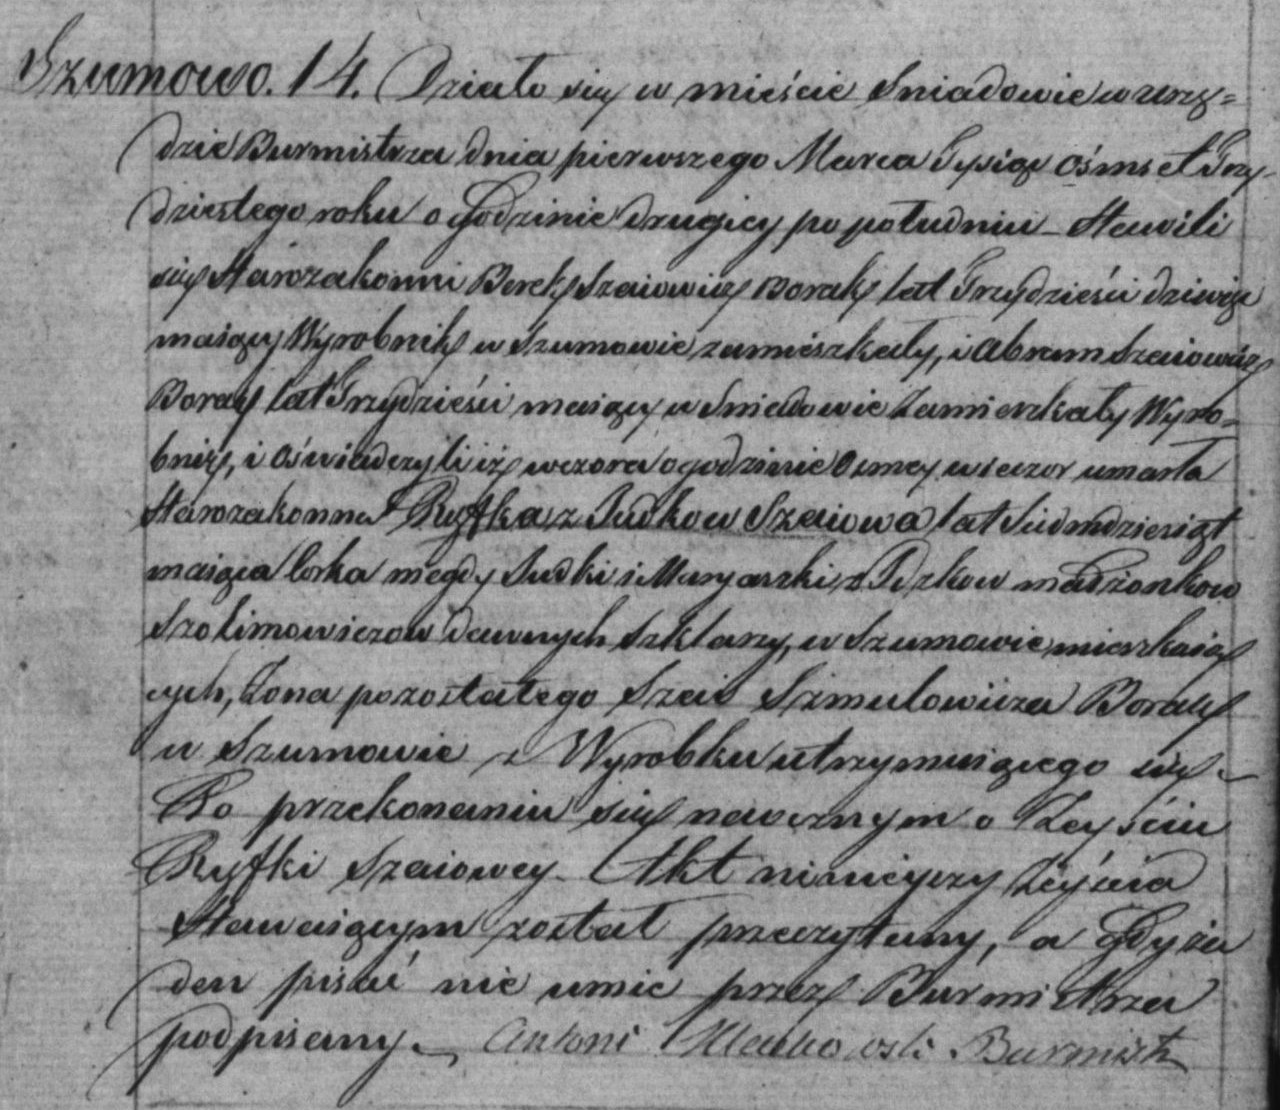 Szumowo. 14. Działo się w mieście Sniadowie w urzę=
dzie Burmistrza dnia pierwszego Marca Tysiąc ośmset Trzy-
dziestego roku o godzinie drugiey po południu Stawili
się Starozakonni Berek Szaiowicz Borak lat Trzydzieści dziewięć
maiący Wyrobnik w Szumowie zamieszkały, i Abram Szaiowicz
Borak lat Trzydzieści maiący w Sniadowie Zamieszkały Wyro-
bnik, i oświadczyli iż wczora o godzinie osmey wieczor umarła
Starozakonna Ryfka z Judkow Szaiowa lat Siedmdziesiąt
maiąca Corka niegdy Judki i Maryaszki z Ickow małżonkow
Szolimowiczow dawnych Szklarzy, w Szumowie mieszkaią
cych, Zona pozostałego Szai Szmulowicza Borak
w Szumowie z Wyrobku utrzymuiącego się
Po przekonaniu się naocznym o Zeyściu
Ryfki Szaiowey Akt ninieyszy Zeyścia
Stawaiącym został przeczytany, a gdy ża
den pisać nie umie przez Burmistrza
podpisany. Antoni Burmistrz